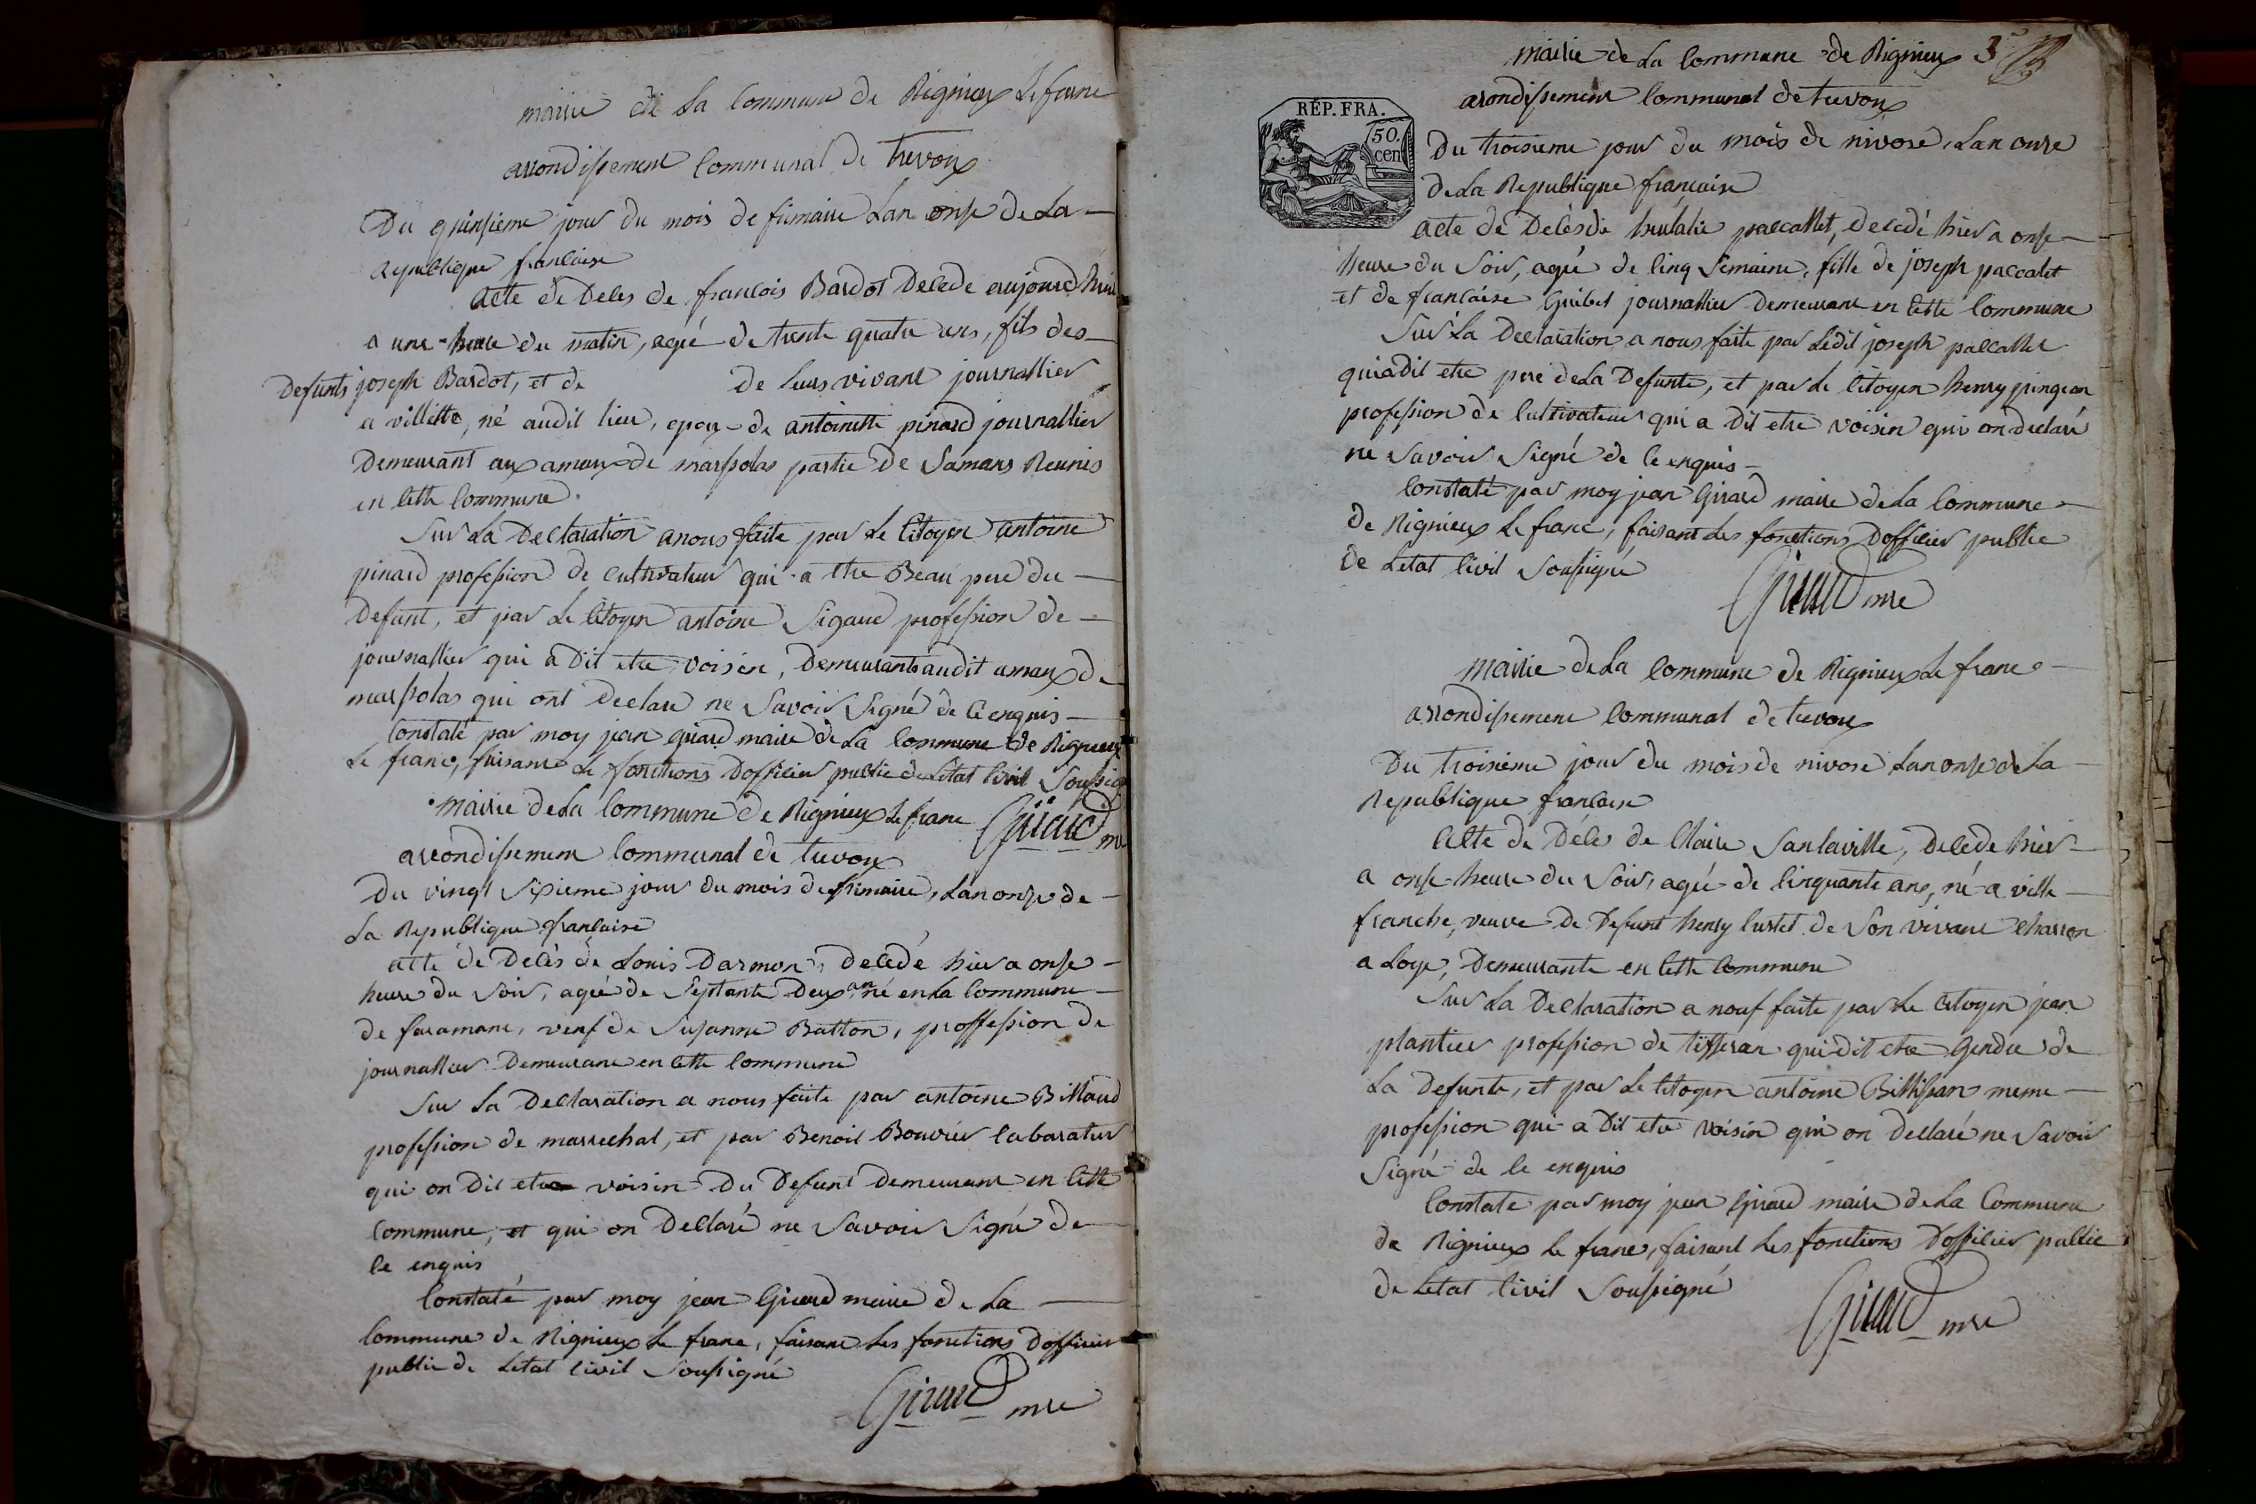 mairie de la Commune de Rignieux Lefranc
arrondissement Communal de trevoux
Du quinsieme jour du mois de frimaire Lan onse de La
Republique francaise
acte de Deces de francois Bardot Decede aujourdhui
a une heure du matin, agé de trente quatre ans, fils des
Defunts joseph Bardot, et de de leurs vivant journallier
a villette, né audit lieu, epoux de antoinette pinard journallier
Demeurant aux amaux de marsolas partie de Samans Reunis
en Cette Commune.
Sur La Declaration a nous faite par Le Citoyen antoine
pinard profession de cultivateur qui a etre Beau pere du
Defunt, et par Le Citoyen antoine Sigaud profession de
journallier qui a Dit etre voisin, Demeurants audit amaux de
marsolas qui ont Declare ne Savoir Signé de Ce enquis
Constaté par moy jean girard maire de La Commune de Rignieux
Le franc, faisant Le fonctions Dofficier public de Letat Civil Soussigné
Girard mre
mairie de La Commune de Rignieux Le franc
arrondissement Communal de trevoux
Du vingt Sixieme jour du mois de frimaire, Lan onse de
La Republique francaise
acte de Deces de Louis Darmon, Decedé hier a onse
heure du Soir, agé de Septante Deux an né en La Commune
de faramans, veuf de Susanne Batton, proffession de
journallier Demeurant en Cette Commune
Sur La Declaration a nous faite par antoine Billaud
profession de marrechal, et par Benoit Bouvier labarateur
qui on Dit etre voisin Du Defunt Demeurant en Cette
Commune, et qui on Declaré ne Savoir Signé de
Ce enquis
Constaté par moy jean Girard maire de La
Commune de Rignieux Le franc, faisant Les fonctions Dofficier
public de Letat Civil Soussigné
Girard mre
mairie de La Commune de Rignieux 3
arondissement Communal de trevoux
RÉP. FRA.
50.
cen
Du troisieme jour du mois de nivose, Lan onse
de La Republique francaise
acte de Decès de heulalie paccallet, decedé hier a onse
heure du Soir, agée de Cinq Semaine, fille de joseph paccalet
et de francoise Guibet journallier Demeurant en Cette Commune
Sur La Declaration a nous faite par Ledit joseph paccallet
qui a dit etre pere de La Defunte, et par Le Citoyen henry pingeon
profession de Cultivateur qui a Dit etre voisin qui on declaré
ne Savoir Signé de Ce enquis
Constaté par moy jean Girard maire de La Commune
de Rignieux Le franc, faisant Les fonctions Dofficier public
de Letat Civil Soussigné
Girard mre
Mairie de La Commune de Rignieux Le franc
arrondissement Communal de trevoux
Du troisieme jour du mois de nivose Lan onse de La
Republique francaise
Acte de Déces de Claire Sanlaville, Decede hier
a onse heure du Soir, agée de Cinquante ans, né a ville
franche, veuve de Defunt henry Curtet de Son vivant charron
a Loye, Demeurante en Cette Commune
Sur La Declaration a nous faite par Le Citoyen jean
plantier profession de tisseran qui dit etre Gendre de
La Defunte, et par Le Citoyen antoine Billiban meme
profession qui a Dit etre voisin qui on Declaré ne Savoir
Signé de Ce enquis
Constate par moy jean Girard maire de La Commune
de Rignieux Le franc, faisant Les fonctions Dofficier public
de Letat Civil Soussigné
Girard mre